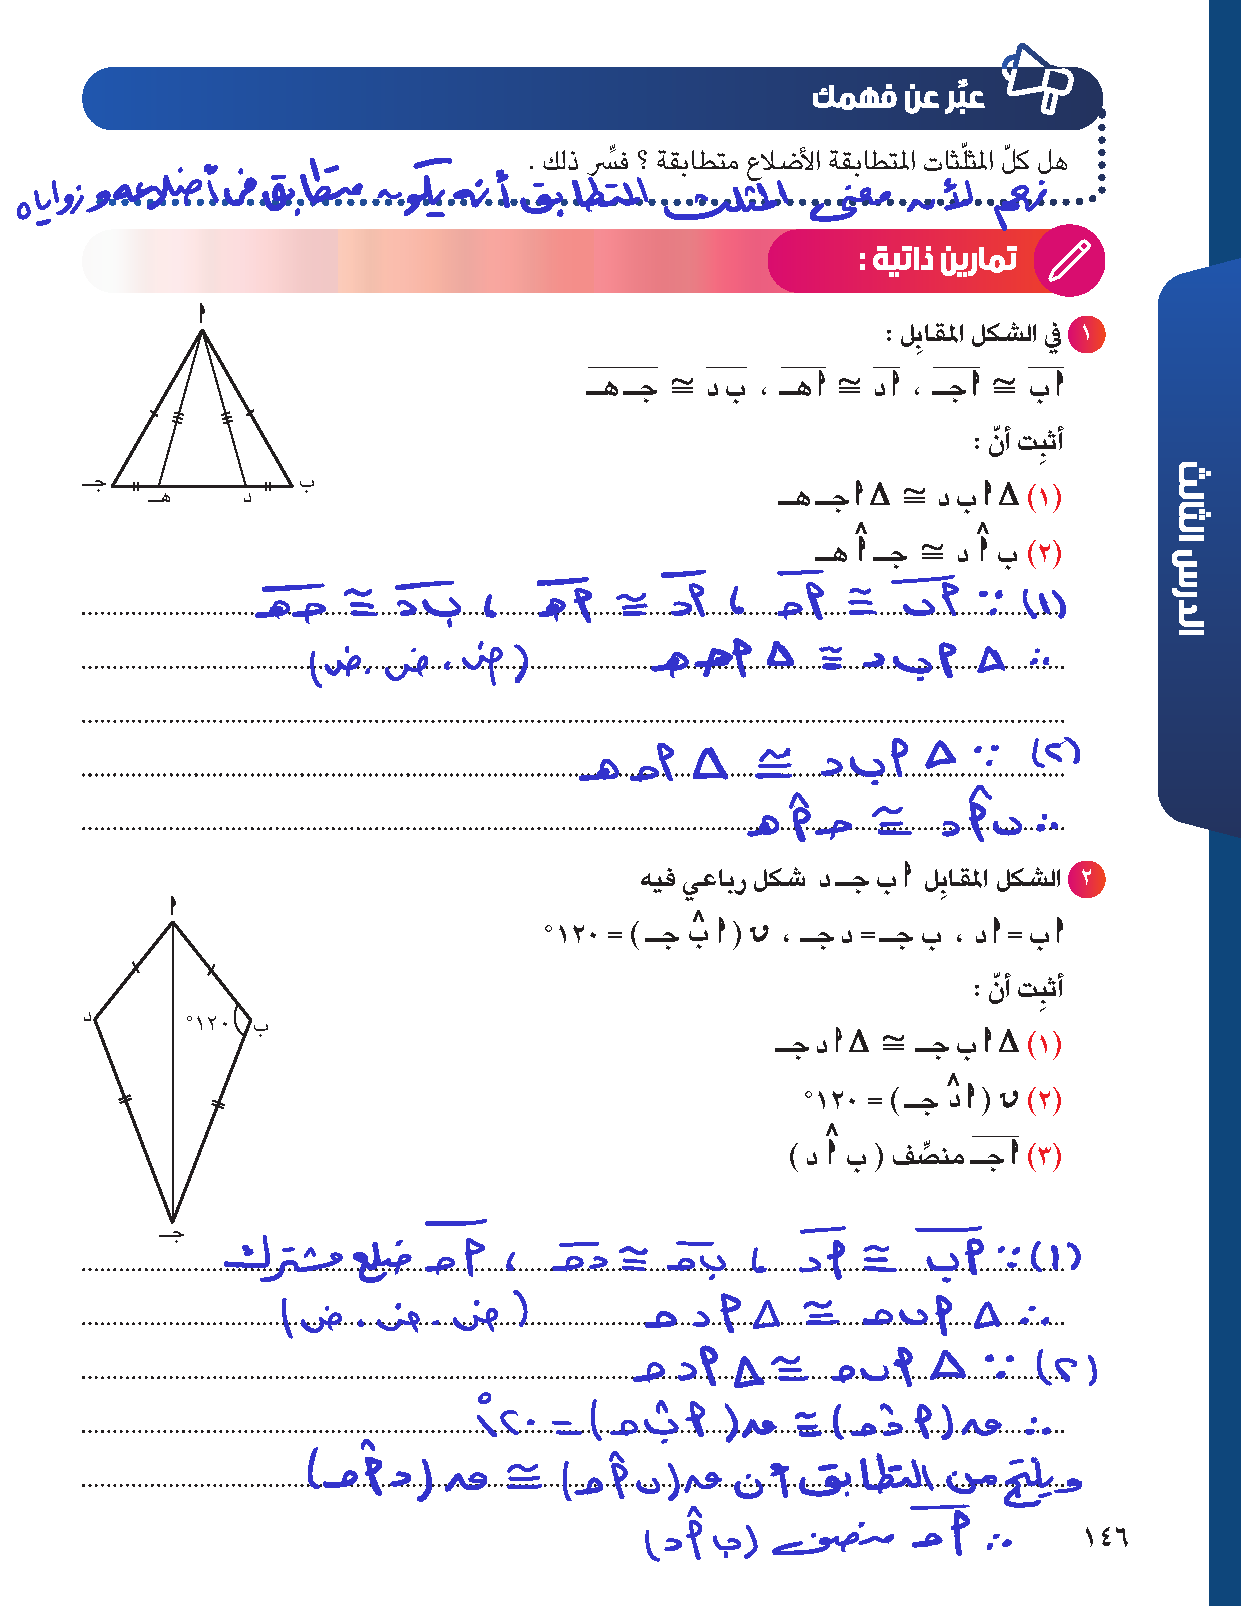 عبِّر عن فهمك
هل كلّ المثلّثات المتطابقة الأضلاع متطابقة ؟ فسِّر ذلك .
نعم لأنه معنى المثلث المتطابق أنه يكون متطابق في أضلاعه وزواياه
تمارين ذاتية :
١ في الشكل المقابِل :
أ ب ≅ أ جـ ، أ د ≅ أ هـ ، ب د ≅ جـ هـ
أثبِت أنّ :
(١) Δ أ ب د ≅ Δ أ جـ هـ
(٢) ب أ̂ د ≅ جـ أ̂ هـ
أ
جـ هـ د ب
(١) ∵ أ ب ≅ أ حـ ، أ د ≅ أ هـ ، ب د ≅ حـ هـ
∴ Δ أ ب د ≅ Δ أ حـ هـ (ض . ض . ض)
(٢) ∵ Δ أ ب د ≅ Δ أ حـ هـ
∴ ب أ̂ د ≅ حـ أ̂ هـ
٢ الشكل المقابِل أ ب جـ د شكل رباعي فيه
أ ب = أ د ، ب جـ = د جـ ، ن ( أ ب̂ جـ ) = ١٢٠°
أثبِت أنّ :
(١) Δ أ ب جـ ≅ Δ أ د جـ
(٢) ن ( أ د̂ جـ ) = ١٢٠°
(٣) أ جـ منصِّف ( ب أ̂ د )
أ
د ١٢٠° ب
جـ
(١) ∵ أ ب ≅ أ د ، ب حـ ≅ د حـ ، أ حـ ضلع مشترك
∴ Δ أ ب حـ ≅ Δ أ د حـ (ض . ض . ض)
(٢) ∵ Δ أ ب حـ ≅ Δ أ د حـ
∴ ن ( أ د̂ حـ ) ≅ ن ( أ ب̂ حـ ) = ١٢٠°
وينتج من التطابق أن ن ( ب أ̂ حـ ) ≅ ن ( د أ̂ حـ )
∴ أ حـ منصف ( ب أ̂ د )
١٤٦
الدرس الثالث